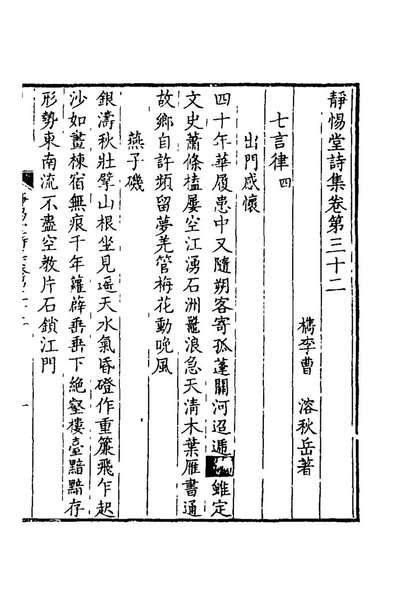 靜惕堂詩集卷第三十二
檇李曹　溶秋岳著
七言律四
出門感懷
四十年華履患中又隨朔客寄孤蓬關河迢遞雖定
文史蕭條榼屢空江湧石洲鼉浪急天清木葉雁書通
故鄉自許頻留夢羌管梅花動晚風
燕子磯
銀濤秋壯擘山根坐見遥天水氣昏磴作重簾飛乍起
沙如畫棟宿無痕千年蘿薜垂垂下絶壑樓臺黯黯存
形勢東南流不盡空教片石鎖江門
一